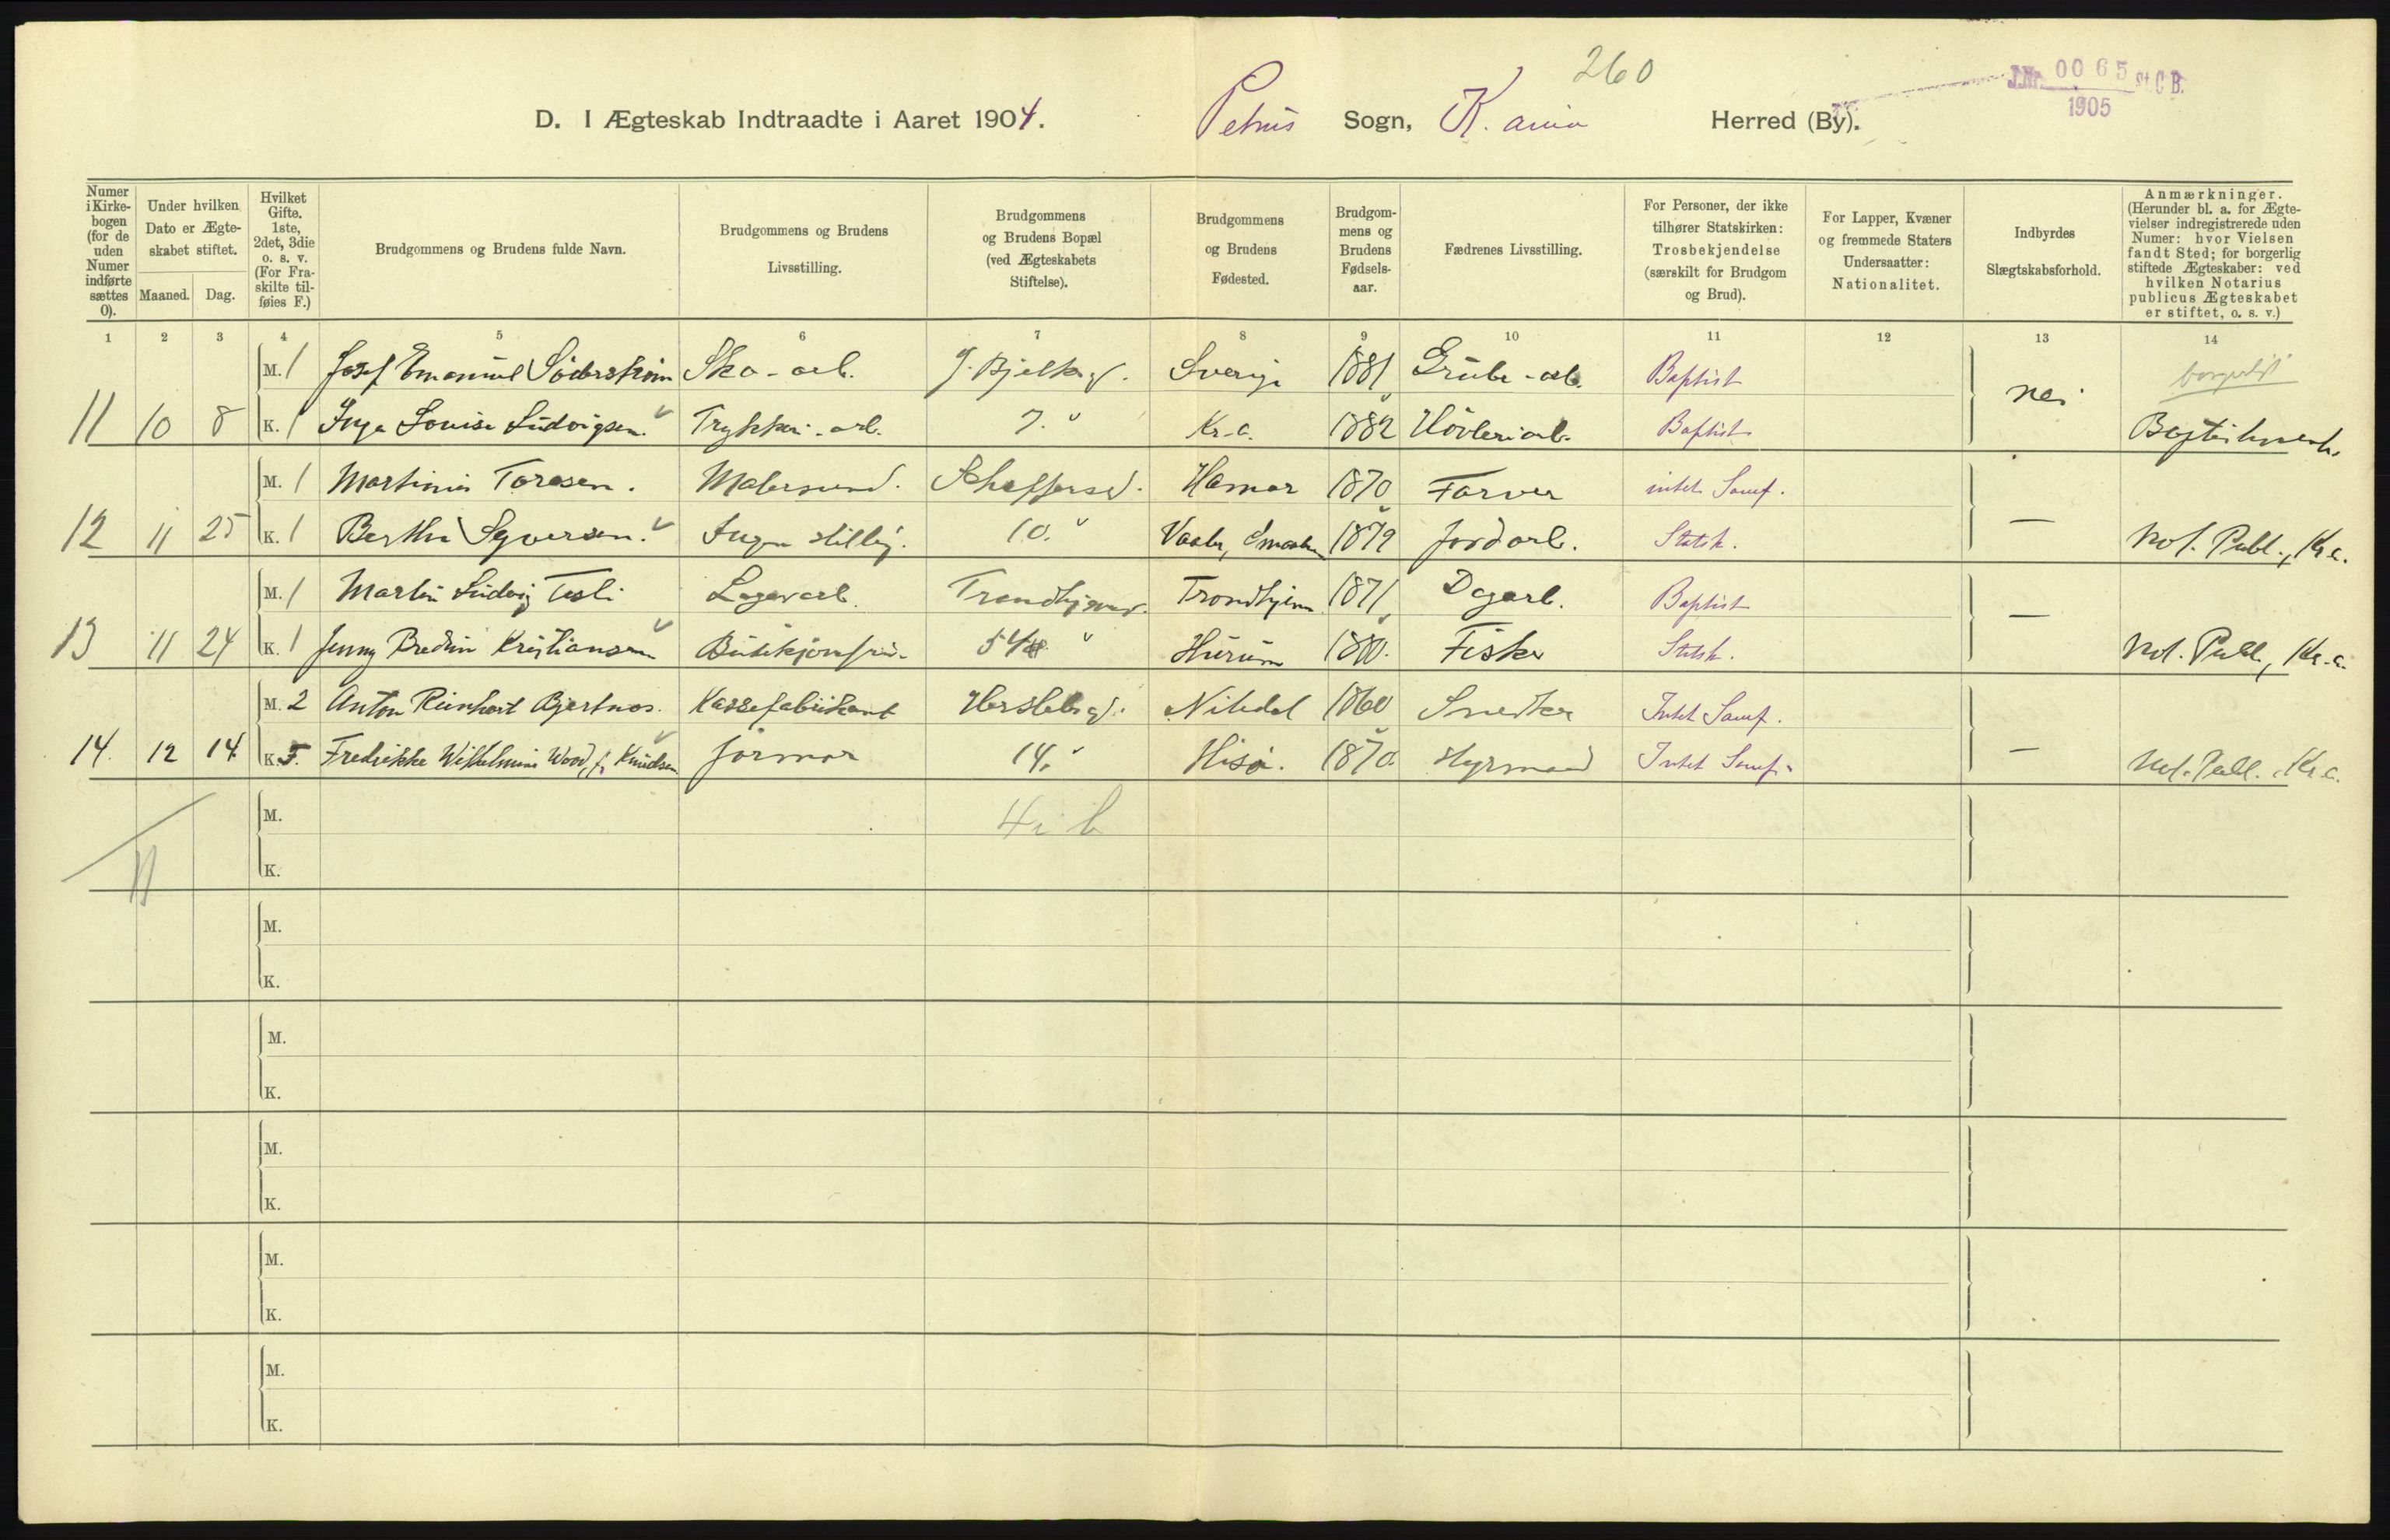 260
J.Nr. 0065 St. C B.
1905
D. I Ægteskab Indtraadte i Aaret 1904. Petrus Sogn, Herred (By).
Numer i Kirkebogen (for de uden Numer indførte sættes 0).
Under hvilken Dato er Ægteskabet stiftet.
Maaned. Dag.
Hvilket Gifte. 1ste, 2det, 3die o. s. v. (For Fraskilte tilføies F.)
Brudgommens og Brudens fulde Navn.
Brudgommens og Brudens Livsstilling.
Brudgommens og Brudens Bopæl (ved Ægteskabets Stiftelse).
Brudgommens og Brudens Fødested.
Brudgommens og Brudens Fødselsaar.
Fædrenes Livsstilling.
For Personer, der ikke tilhører Statskirken: Trosbekjendelse (særskilt for Brudgom og Brud).
For Lapper, Kvæner og fremmede Staters Undersaatter: Nationalitet.
Indbyrdes Slægtskabsforhold.
Anmærkninger. (Herunder bl. a. for Ægtevielser indregistrerede uden Numer: hvor Vielsen fandt Sted; for borgerlig stiftede Ægteskaber: ved hvilken Notarius publicus Ægteskabet er stiftet, o. s. v.)
1 2 3 4 5 6 7 8 9 10 11 12 13 14
M. 1 Josef Emanuel Söderström Sko-arb. J. Bjelkesg. Sverige 1881 Grube-arb. Baptist nei borgerligt
11 10 8 K. 1 Inga Lovise Ludvigsen Trykkeri-arb. 7. Kr.a. 1882 Høvleriarb. Baptist
M. 1 Martinius Toresen. Malersvend. Scheffersg. Hamar 1870 Farver intet Samf.
12 11 25 K. 1 Berthe Syversen Ingen stillig. 10. Vaaler, Smaalen 1879 Jordarb. Statsk. — Not. Publ., Kr.a.
M. 1 Martin Ludvig Lagerarb. Trondhjemsv. Trondhjem 1871 Dagarb. Baptist
13 11 24 K. 1 Jenny Kristiansen 54 Hurum 1880. Fisker Statsk. — Not. Publ., Kr.a.
M. 2 Anton Reinhart Bjertnæs. Kassefabrikant Herslebsg. Nitedal 1860 Snedker Intet Samf.
14. 12 14 K. F. Fredrikke Wilhelmine Wood, f. Knudsen Jormor 14. Hisø. 1870. Styrmand Intet Samf. — Not. Publ. Kr.a.
M. 4 b
K.
M.
K.
M.
K.
M.
K.
M.
K.
M.
K.